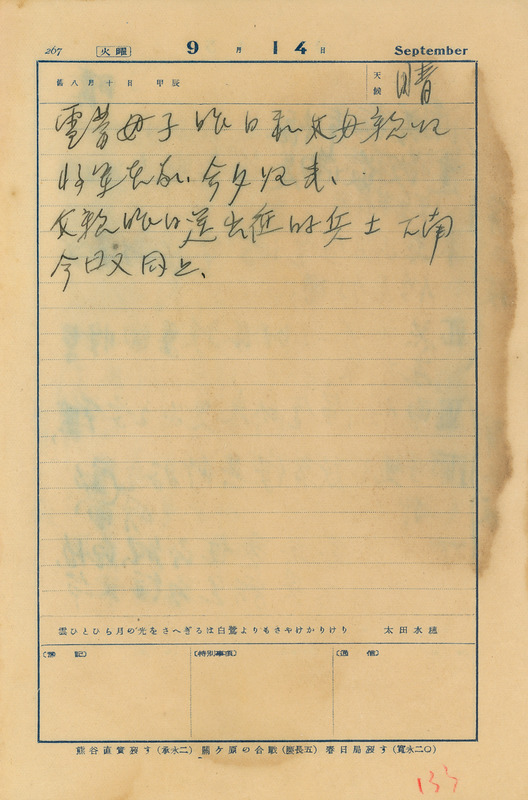 267 火曜 9月14日 September
舊八月十日 甲辰
天候 晴
母子昨日和父母親
今夕归来、
父親昨日送出征的兵士
今日又同上、
雲ひとひら月の光をさへぎるは白鷺よりもさやけかりけり 太田水穗
〔豫記〕 〔特別事項〕 〔通信〕
熊谷直實歿す(承永二) 關ケ原の合戰(慶長五) 春日局歿す(寛永二〇)
133